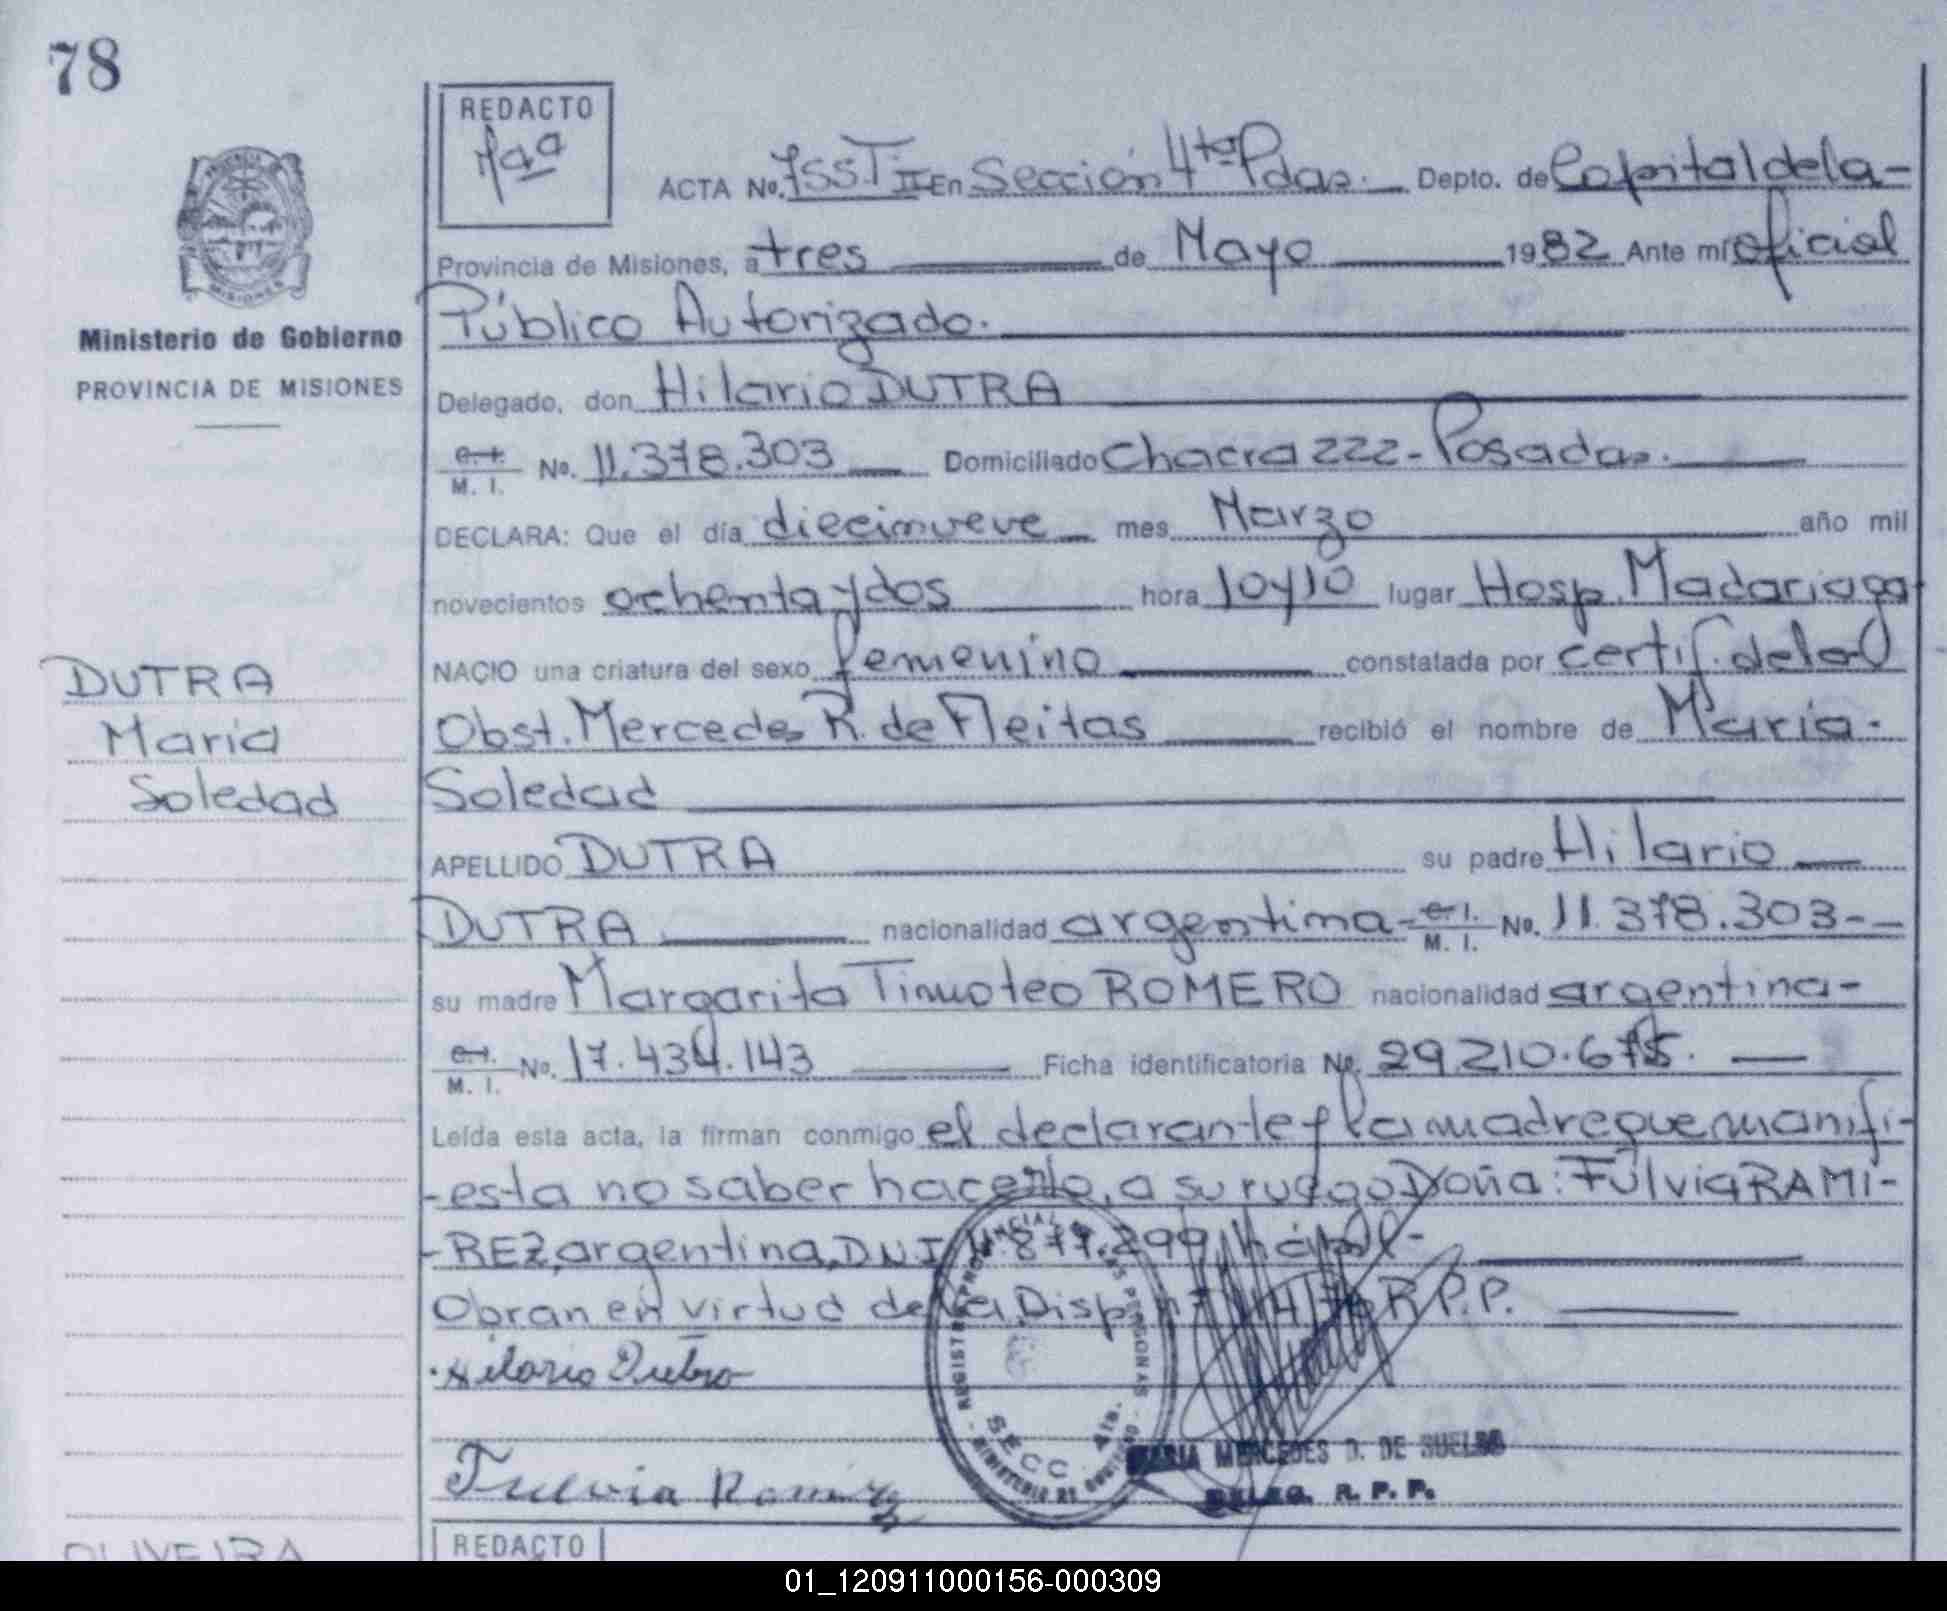 78
REDACTO
ACTA No. 755 T II En Sección 4ta Pdas. Depto. de Capital de la-
Provincia de Misiones, a tres de Mayo 1982 Ante mí oficial
Público Autorizado.
Delegado, don Hilario DUTRA
C. I. / M. I. No. 11.378.303 Domiciliado Chacra 222- Posadas.
DECLARA: Que el día diecinueve mes Marzo año mil
novecientos ochenta y dos hora 10 y 10 lugar Hosp. Madariaga
NACIO una criatura del sexo femenino constatada por certif. de la
Obst. Mercedes R. de Fleitas recibió el nombre de María-
Soledad
APELLIDO DUTRA su padre Hilario
DUTRA nacionalidad argentina- C. I. / M. I. No. 11.378.303-
su madre Margarita Timoteo ROMERO nacionalidad argentina-
C. I. / M. I. No. 17.434.143 Ficha identificatoria No. 29.210.675.
Leída esta acta, la firman conmigo el declarante y la madre que manifi-
-esta no saber hacerlo, a su ruego Doña: Fulvia RAMI-
-REZ, argentina, D.N.I. 877.299,
Obran en virtud de la Disp. R.P.P.
Hilario Dutra
Fulvia Ramirez
REGISTRO PROVINCIAL DE LAS PERSONAS
SECC. 4ta.
MINISTERIO DE GOBIERNO
MARIA MERCEDES D. DE SUELDO
DELEG. R. P. P.
PROVINCIA DE
MISIONES
Ministerio de Gobierno
PROVINCIA DE MISIONES
DUTRA
María
Soledad
OLIVEIRA
REDACTO
01_120911000156-000309